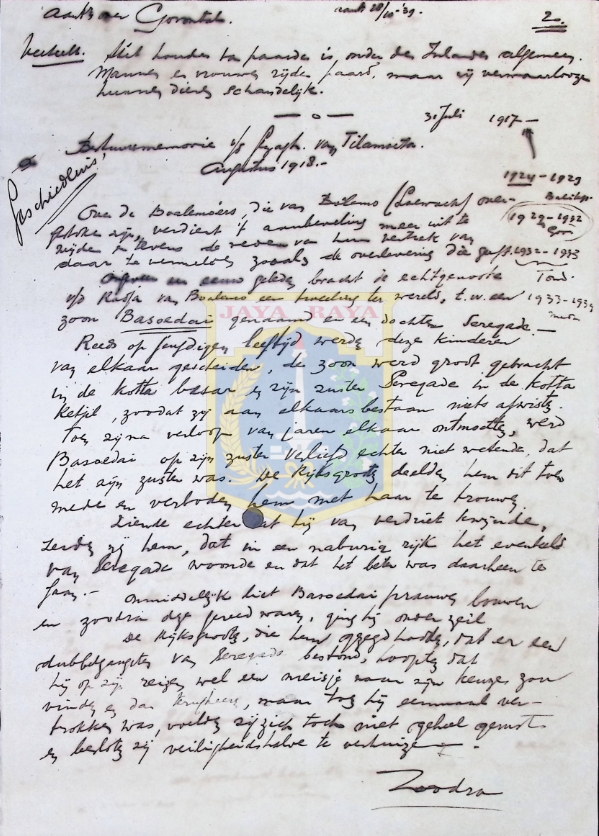 aant. over Gorontalo. 2.
Verkeer. Het houden van paarden is, onder de Inlanders algemeen.
Mannen en vrouwen rijden paard, maar zij verwaarloozen
hunne dieren schandelijk.
31 Juli 1917 —
Bestuursmemorie v/d van Tilamoeta.
Augustus 1918. —
Geschiedenis,
1924 — 1929
1929 - 1932
Gor
1932 - 1933
1933 - 193
Over de Boalemoërs, die van over-
gestoken zijn, verdient 't aanbeveling meer uit te
en tevens de reden van hun vertrek van
daar te vermelden zooals de overlevering die geeft.
geleden bracht de echtgenoote
v/d Radja van een tweeling ter wereld, t.w. een
zoon Basoedai genaamd en een dochter Seregade. —
JAYA RAYA
Reeds op jeugdigen leeftijd werden deze kinderen
van elkaar gescheiden, de zoon werd groot gebracht
in de Kotta besar en zijn zuster Seregade in de Kotta
Ketjil, zoodat zij aan elkaars bestaan niets afwisten.
Toen zij na verloop van jaren elkaar ontmoetten, werd
Basoedai op zijn zuster verliefd echter niet wetende, dat
het zijn zuster was. De Rijksgrooten deelden hem dit toen
mede en verboden hem met haar te trouwen.
Ziende echter dat hij van verdriet kwijnde,
zeiden zij hem, dat in een naburig rijk het evenbeeld
van Seregade woonde en dat het beter was daarheen te
gaan. — Onmiddellijk liet Basoedai prauwen bouwen
en zoodra deze gereed waren, ging hij onder zeil
De Rijksgrooten, die hem gezegd hadden, dat er een
dubbelgangster van Seregade bestond, hoopten dat
hij op zijn reizen wel een meisje naar zijn keuze zou
vinden en dan, maar toen hij eenmaal ver-
trokken was, voelden zij zich toch niet geheel gerust
en besloten zij veiligheidshalve te verhuizen. —
Zoodra